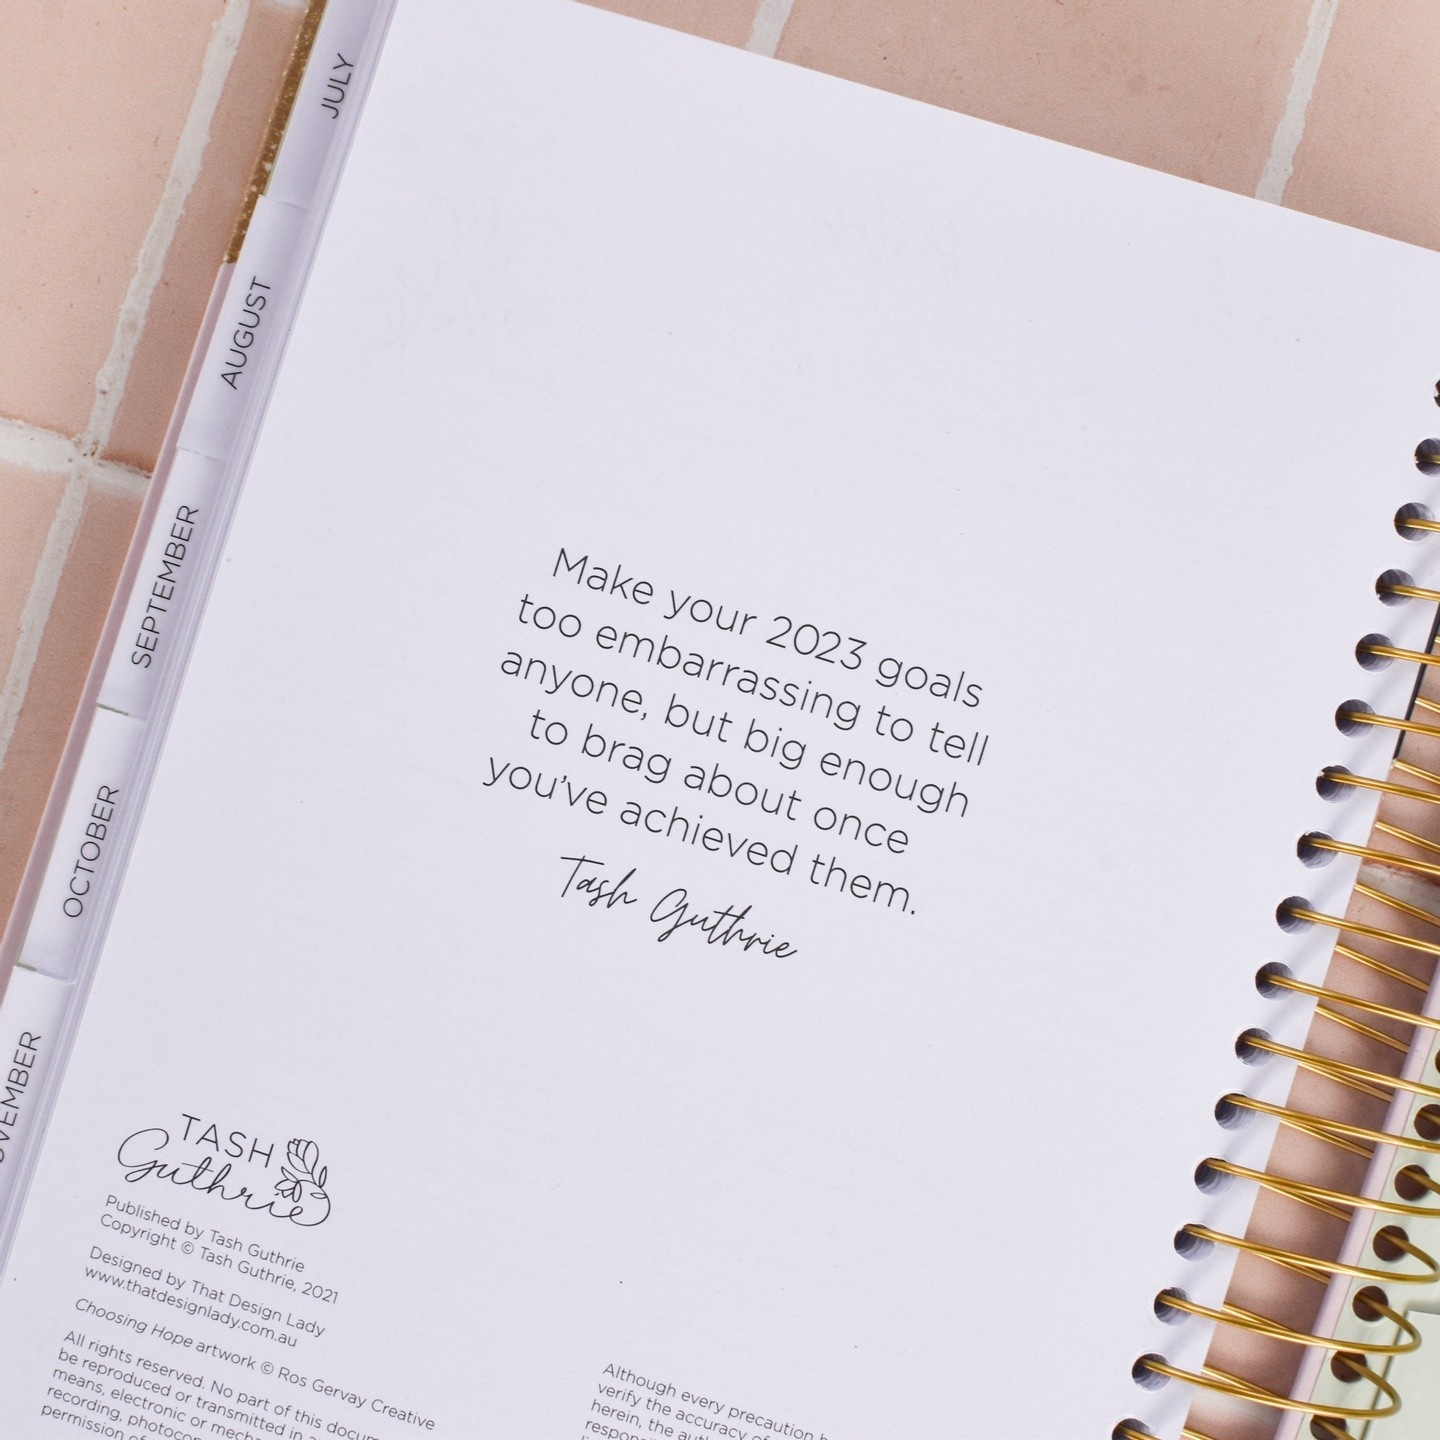 JULY
AUGUST
SEPTEMBER
OCTOBER
Make your 2023 goals
too embarrassing to tell
anyone, but big enough
to brag about once
you've achieved them.
Tash Guthrie
TASH
Guthrie
Published by Tash Guthrie
Copyright © Tash Guthrie, 2021
Designed by That Design Lady
www.thatdesignlady.com.au
Choosing Hope artwork © Ros Gervay Creative
All rights reserved. No part of this
be reproduced or transmitted in
means, electronic or
recording,
permission
Although every precaution
verify the accuracy
herein, the